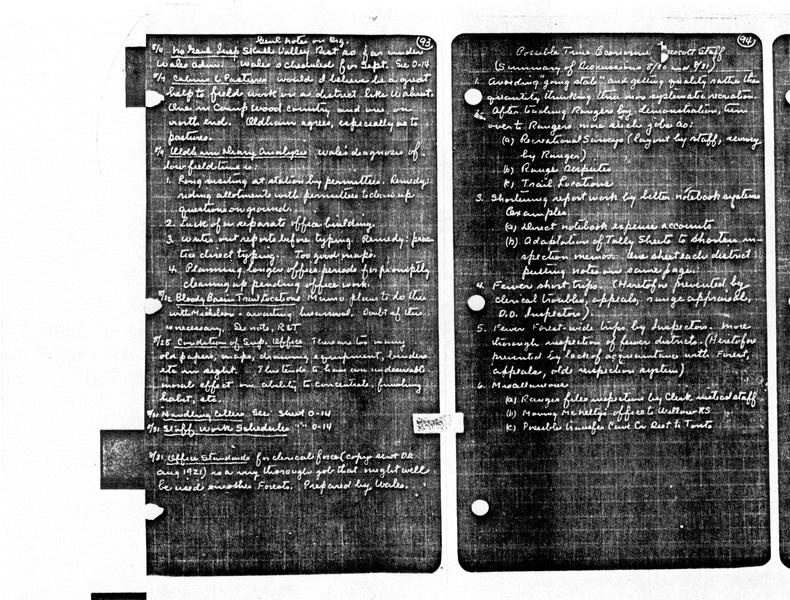 Genl notes on Org.
93
8/6 No Genl Insp Skull Valley Dist so far under
Wales admin. Wales scheduled for Sept. See O-14
8/7 Cabins & Pastures would I believe be a great
help to field work on a district like Walnut.
One in Camp Wood country and one on
north end. Oldham agrees, especially as to
pastures.
8/9 Oldham Diary Analysis. Wales diagnosis of
low field time is:
1. Long visiting at station by permittees. Remedy:
riding allotments with permittees to clean up
questions on ground.
2. Lack of a separate office building.
3. Writes out reports before typing. Remedy: prac-
tice direct typing. Too good maps.
4. Planning longer office periods for promptly
cleaning up pending office work.
8/12 Bloody Basin Trail Locations. Munro plans to do this
with Mickelson - awaiting his arrival. Doubt if this
is necessary. See note, R&T
8/25 Condition of Sup. Office. There are too many
old papers, maps, drawing equipment, binders
etc in sight. This tends to have an undesirable
moral effect on ability to concentrate, finishing
habit, etc.
8/31 Handling Letters. See Sheet O-14
8/31 Staff Work Schedules " " O-14
8/31 Office Standards for clerical force (copy sent DO
Aug 1921) is a very thorough job that might well
be used on other Forests. Prepared by Wales.
94
Possible Time Economies Prescott Staff
(Summary of Discussions 8/30 and 8/31)
1. Avoiding "going stale" and getting quality rather than
quantity thinking thru more systematic recreation.
2. After teaching Rangers by demonstration, turn
over to Rangers more such jobs as:
(a) Recreational Surveys (layout by staff, survey
by Ranger)
(b) Range Disputes
(c) Trail Locations
3. Shortening report work by better notebook systems
Examples
(a) Direct notebook expense accounts
(b) Adaptation of Tally Sheets to shorten in-
spection memos. Use sheet each district
putting notes on same page.
4. Fewer short trips. (Heretofore prevented by
clerical troubles, appeals, range appraisal,
D.O. Inspectors)
5. Fewer Forest-wide trips by Inspectors. More
thorough inspection of fewer districts. (Heretofore
prevented by lack of acquaintance with Forest,
appeals, old inspection system)
6. Miscellaneous
(a) Ranges files inspection by Clerk instead staff
(b) Moving McNelty's office to Willow RS
(c) Possible transfer Cave Cr Dist to Tonto